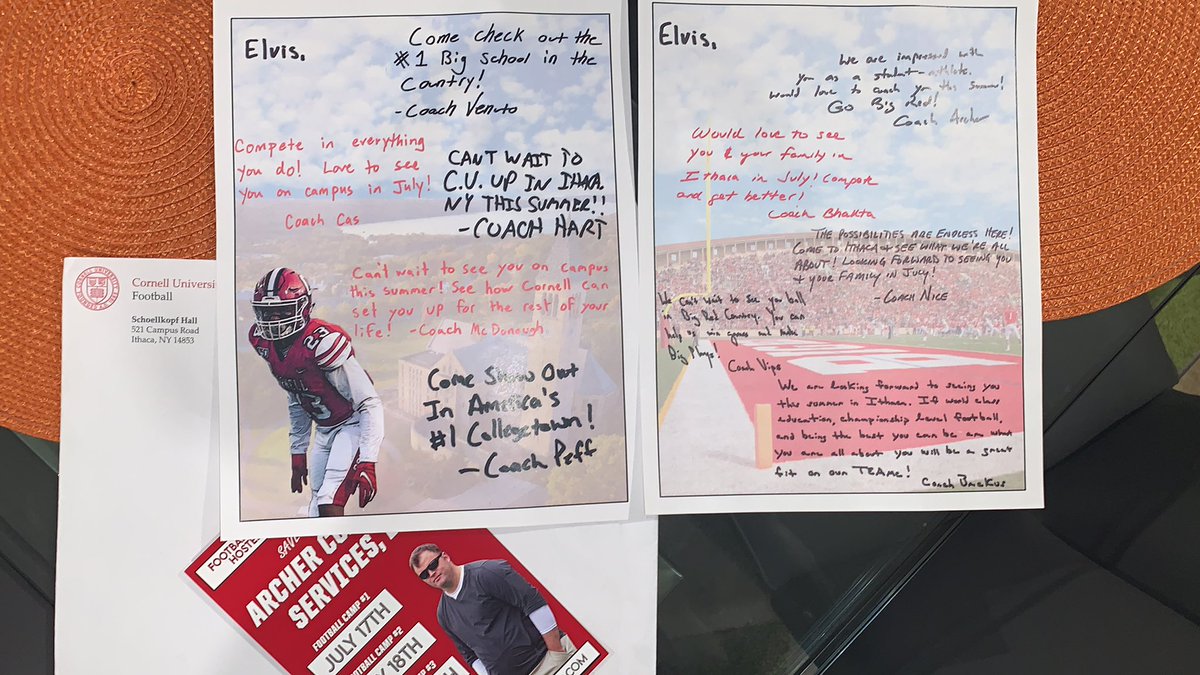 Elvis,
Come check out the
#1 Big School in the
Country!
-Coach Venuto
Compete in everything
you do! Love to see
you on campus in July!
Coach Cas
CAN'T WAIT TO
C.U. UP IN ITHACA,
NY THIS SUMMER!!
-COACH HART
Can't wait to see you on campus
this summer! See how Cornell can
set you up for the rest of your
life! -Coach McDonough
Come Show Out
In America's
#1 Collegetown!
-Coach Peff
23
Elvis,
We are impressed with
you as a student-athlete.
Would love to coach you this summer!
Go Big Red!
Coach Archer
Would love to see
you & your family in
Ithaca in July! Compete
and get better!
Coach Bhakta
THE POSSIBILITIES ARE ENDLESS HERE!
COME TO ITHACA + SEE WHAT WE'RE ALL
ABOUT! LOOKING FORWARD TO SEEING YOU
+ YOUR FAMILY IN JULY!
-COACH NICE
We can't wait to see you ball
in Big Red Country. You can
help us win games and make
Big Plays!
Coach Vipo
We are looking forward to seeing you
this summer in Ithaca. If world class
education, championship level football,
and being the best you can be are what
you are all about you will be a great
fit on our TEAM!
Coach Backus
Cornell Universi
Football
Schoellkopf Hall
521 Campus Road
Ithaca, NY 14853
FOOTBALL
HOSTE
SAVE
ARCHER CO
SERVICES,
FOOTBALL CAMP #1
JULY 17TH
FOOTBALL CAMP #2
18TH
#3
.COM